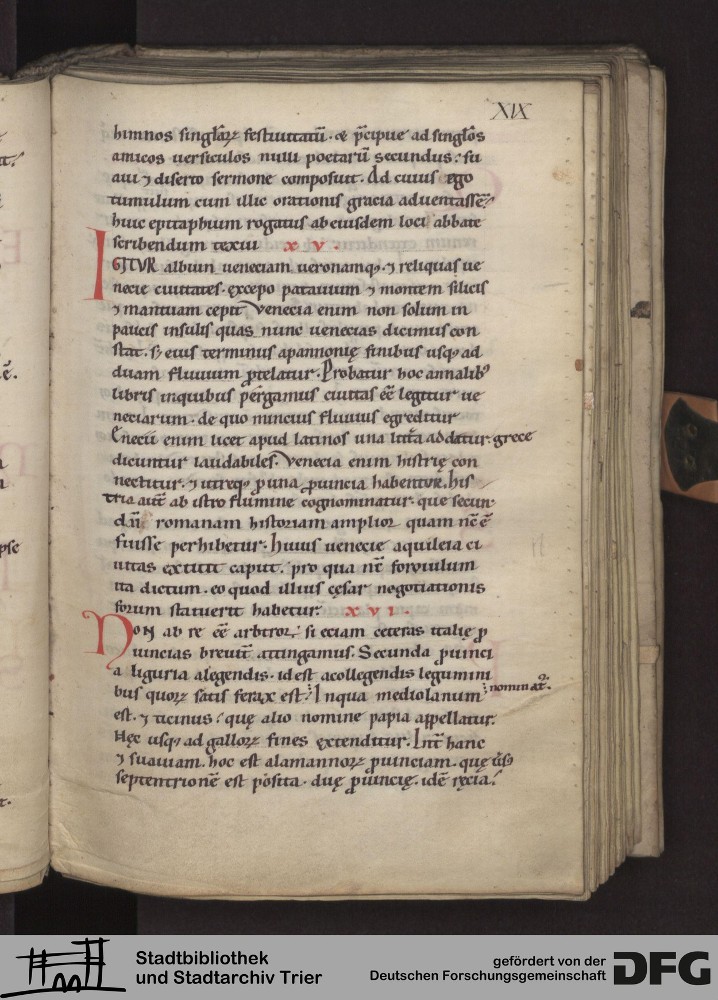 XIX
himnos singlarꝝ festiuitatū · & p̄cipue ad singłos
amicos uersiculos nulli poetarū secundus: su
aui ⁊ diserto sermone composuit. Ad cuius ego
tumulum cum illic orationis gracia aduentassē;
huic epitaphium rogatus ab eiusdem loci abbate
scribendum texui xv.
IGITUR albuin ueneciam ueronamqꝫ ⁊ reliquas ue
necie ciuitates · excepo patauium ⁊ montem silicis
⁊ mantuam cepit Venecia enim non solum in
paucis insulis quas nunc uenecias dicimus con
stat · sꝫ eius terminus apannonię finibus usqꝫ ad
duam fluuium ꝓtelatur · Probatur hoc annalibꝰ
libris inquibus pergamus ciuitas eē legitur ue
neciarum · de quo mincius fluuius egreditur
Enecii enim licet apud latinos una litt̄a addatur · grece
dicuntur laudabiles · Venecia enim histrię con
nectitur · ⁊ utreqꝫ ꝓ una ꝓuincia habentur. his
tria aut̄ ab istro flumine cognominatur · que secun
dū romanam historiam amplior quam nc̄ ē
fuisse perhibetur · Huius uenecie aquileia ci
uitas extitit caput. pro qua nc̄ foruiulum
ita dictum · eo quod illius cęsar negotiationis
forum statuerit habetur. xvi.
Non ab re eē arbitror; si eciam ceteras italię ꝓ
uincias breuit̄ attingamus. Secunda ꝓuinci
a liguria alegendis · id est acollegendis legumini
bus quorꝝ satis ferax est · Inqua mediolanum nominat᷑.
est · ⁊ ticinus quę alio nomine papia appellatur.
Hęc usqꝫ ad gallorꝝ fines extenditur. Int̄ hanc
⁊ suauiam · hoc est alamannorꝝ ꝓuinciam · quę ūsꝰ
septentrionē est posita · duę ꝓuincię · idē ręcia.
Stadtbibliothek
und Stadtarchiv Trier
gefördert von der
Deutschen Forschungsgemeinschaft
DFG